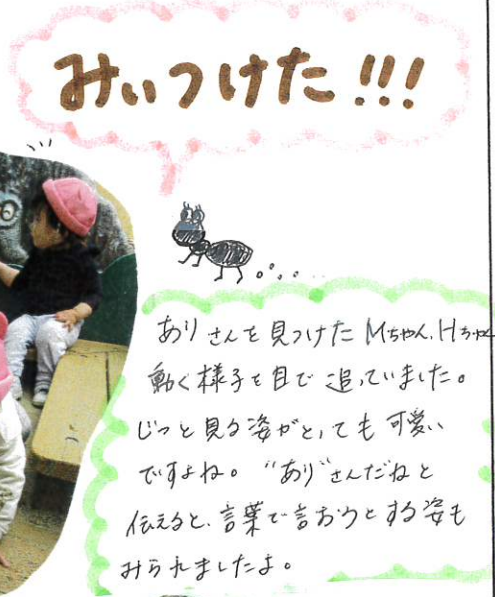 みぃつけた!!!
ありさんを見つけたMちゃん、Hちゃん
動く様子を目で追っていました。
じっと見る姿がとっても可愛い
ですよね。“あり”さんだねと
伝えると、言葉で言おうとする姿も
みられましたよ。